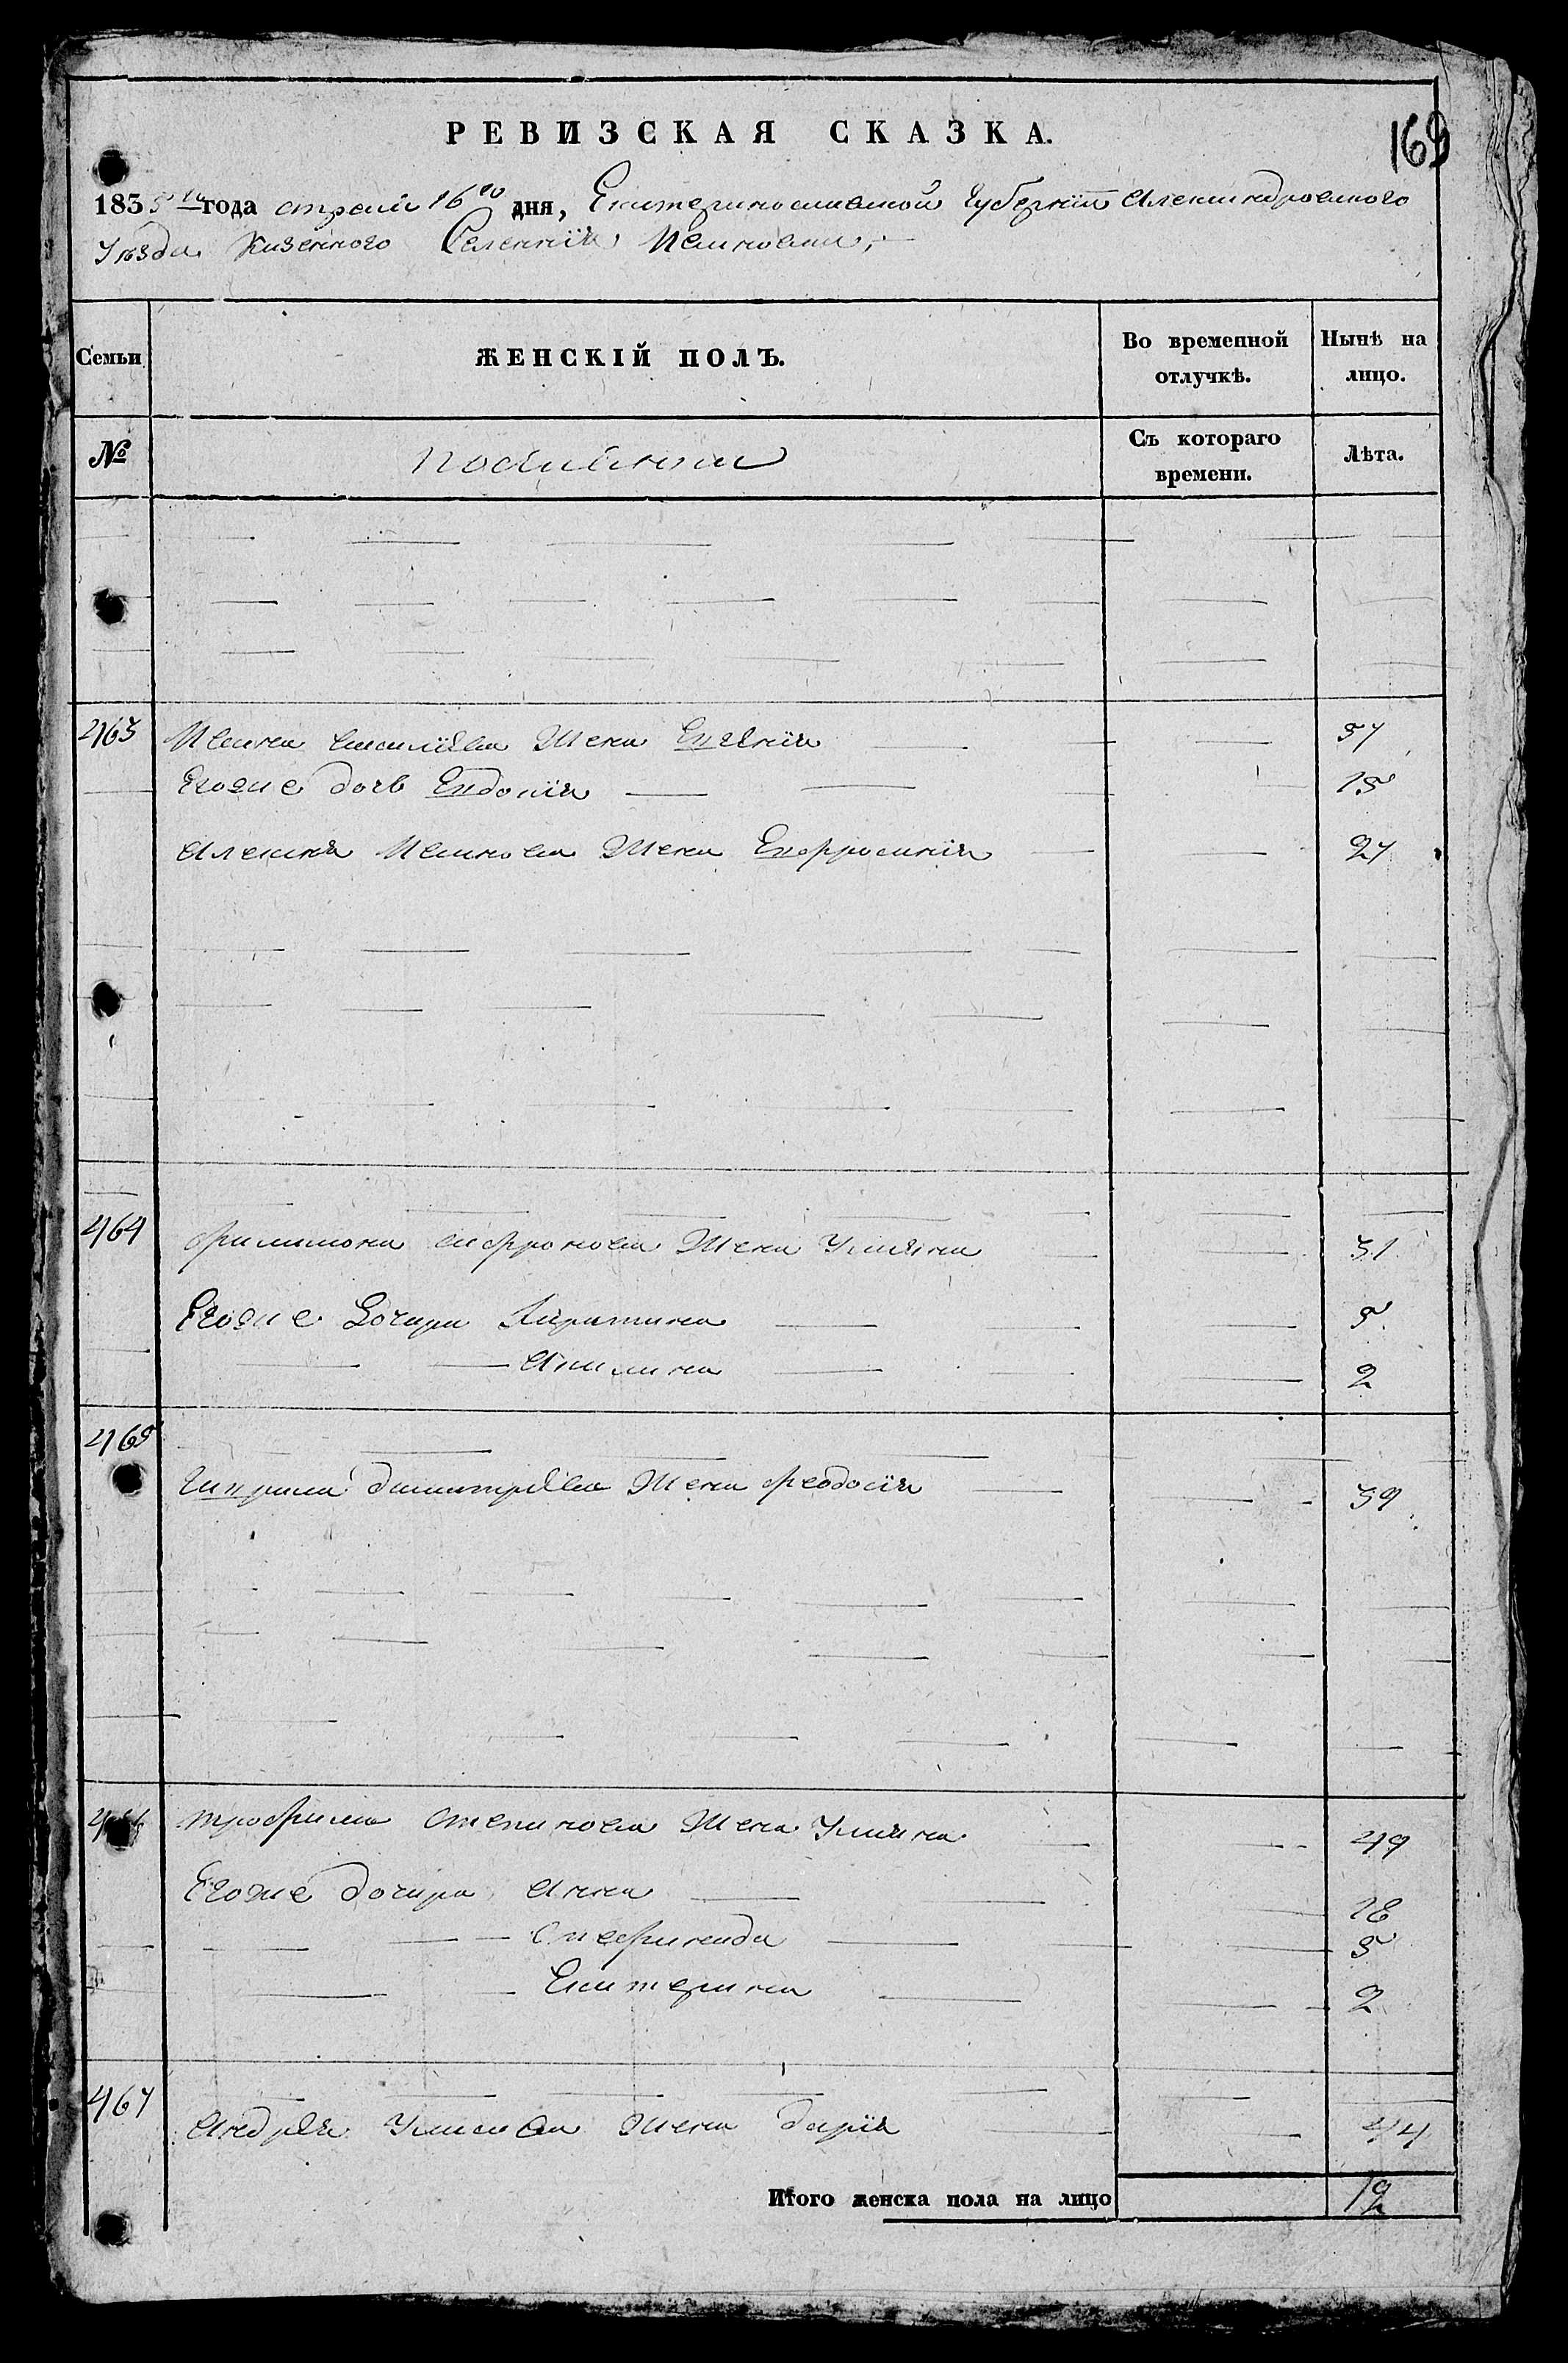 РЕВИЗСКАЯ СКАЗКА.
169
1835 года апреля 16го дня, Екатеринославской Губернии Александровского
Уезда Казенного Селения Ивановки
Семьи
ЖЕНСКІЙ ПОЛЪ.
Во временной отлучкѣ.
Нынѣ на лицо.
№
Съ котораго времени.
Лѣта.
463 Ивана Васильева жена Евгения 57
Его же дочь Евдокия 15
Алексея Иванова жена Евфросиния 27
464 Филимона жена Ульяна 31
Его же дочери 5
Акилина 2
465 Гаврила Димитриева жена Феодосия 39
466 Трофима Степанова жена Ульяна 49
Его же дочери Анна 18
Степанида 5
Екатерина 2
467 Андрея жена Дария 44
Итого женска пола на лицо 12